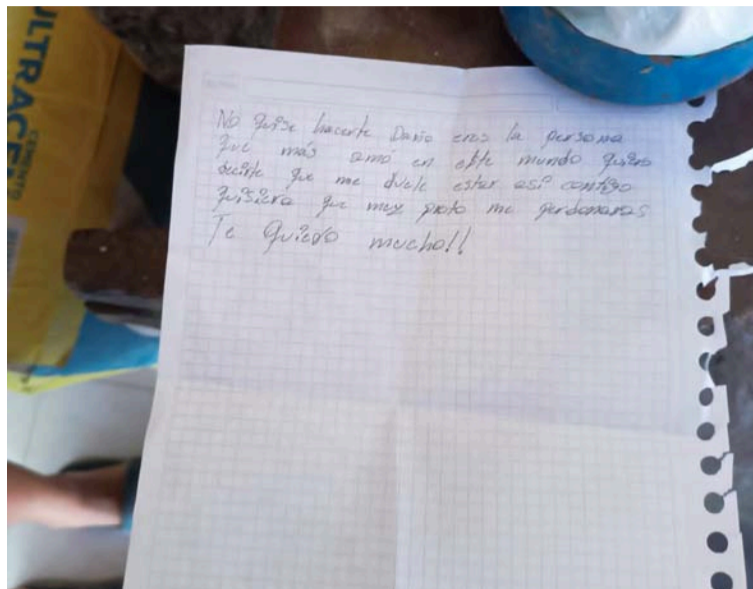 ULTRACEM
CEMENTO
No quise hacerte Daño eres la persona
que más amó en este mundo quiero
decirte que me duele estar así contigo
quisiera que muy proto me perdonaras
Te quiero mucho!!